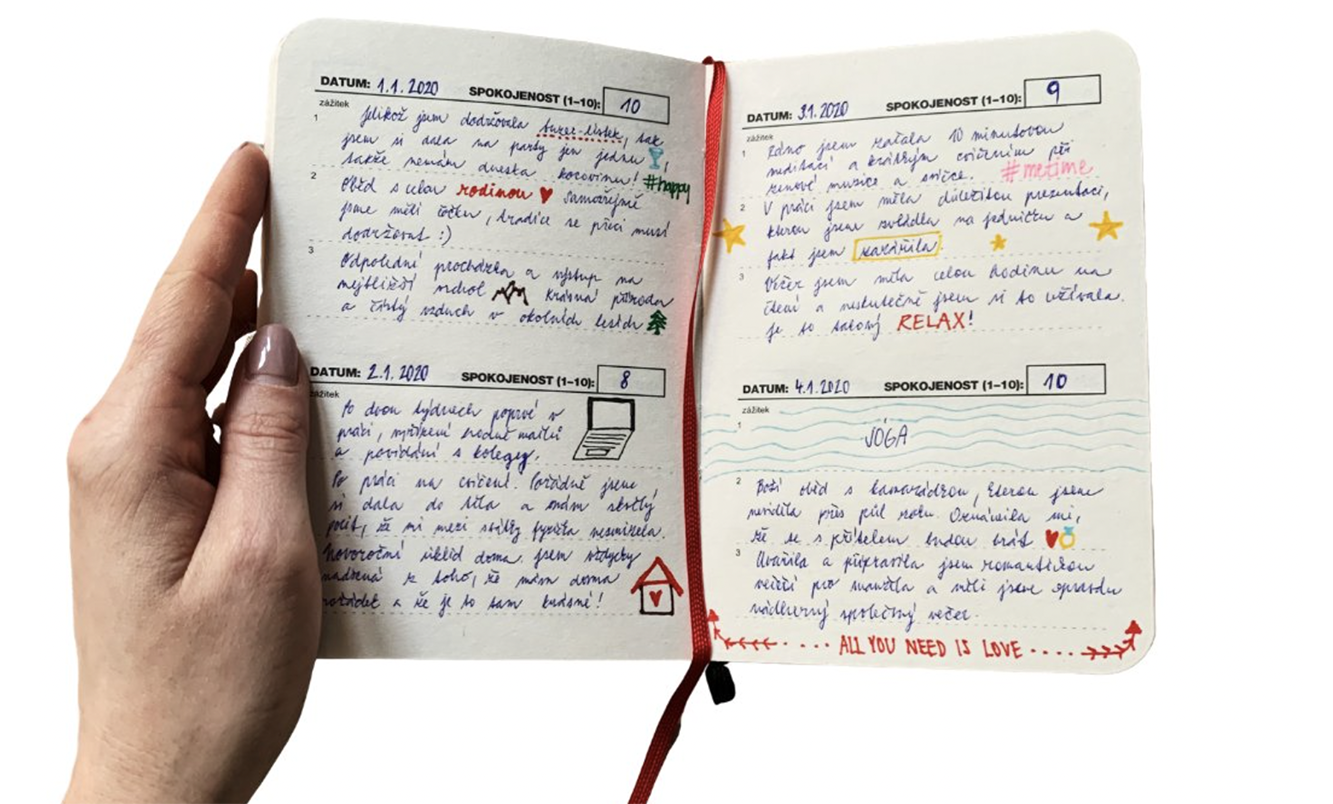 DATUM: 1.1. 2020 SPOKOJENOST (1–10): 10
zážitek
1 Jelikož jsem dodržovala tuzec-lístek, tak
jsem si dala na party jen jednu
takže nemám dneska kocovinu! #happy
2 Oběd s celou rodinou samozřejmě
jsme měli čočku, tradice se přeci musí
dodržovat :)
3 Odpolední procházka a výstup na
nejbližší vrchol krásná příroda
a čistý vzduch v okolních lesích
DATUM: 2.1. 2020 SPOKOJENOST (1–10): 8
zážitek
Po dvou týdnech poprvé v
práci, vyřízení hodně mailů
a povídání s kolegy.
Po práci na cvičení. Pořádně jsem
si dala do těla a mám skvělý
pocit, že mi mezi svátky fyzička nezmizela.
Novoroční úklid doma. jsem vždycky
nadšená z toho, že mám doma
pořádek a že je to tam krásné!
DATUM: 3.1. 2020 SPOKOJENOST (1–10): 9
zážitek
1 Ráno jsem začala 10 minutovou
meditací a krátkým cvičením při
zenové muzice a svíčce. #metime
2 V práci jsem měla důležitou prezentaci,
kterou jsem zvládla na jedničku a
fakt jsem zazářila
3 Večer jsem měla celou hodinu na
čtení a neskutečně jsem si to užívala.
je to takový RELAX!
DATUM: 4.1. 2020 SPOKOJENOST (1–10): 10
zážitek
1 JÓGA
2 Boží oběd s kamarádkou, kterou jsem
neviděla přes půl roku. Oznámila mi,
že se s přítelem budou brát
3 Uvařila a připravila jsem romantickou
večeři pro manžela a měli jsme opravdu
nádherný společný večer.
ALL YOU NEED IS LOVE